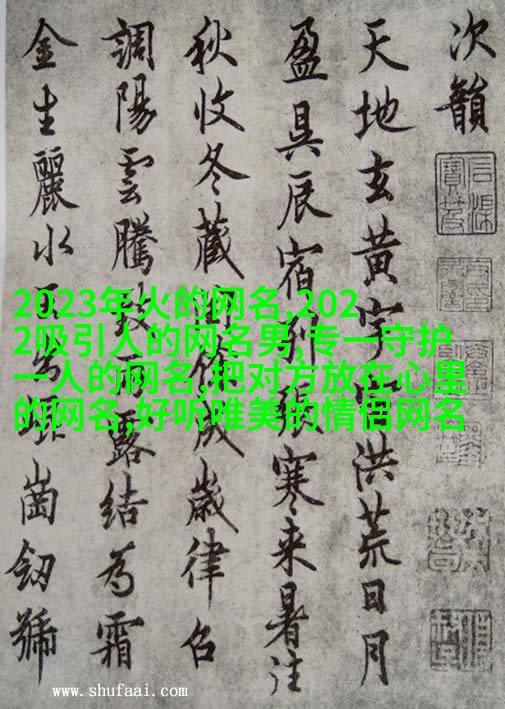 次韻
天地玄黃宇洪荒日月
盈昃辰宿列張寒来暑往
秋收冬藏成歲律召
調陽雲騰致雨露結為霜
金生麗水崗劒號
2023年火的网名,202
2吸引人的网名男,专一守护
一人的网名,把对方放在心里
的网名,好听唯美的情侣网名
www.shufaai.com